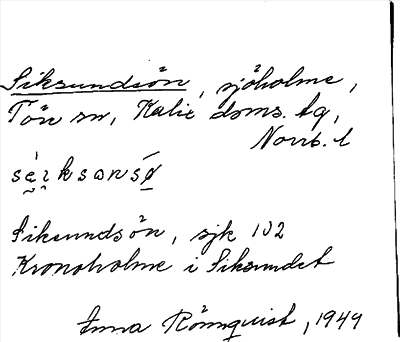 Siksundsön, sjöholme,
Tön sn, Kalix doms. tg,
Norrb. l
Siksundsön, sjk 102
Kronoholme i Siksundet
Anna Rönnquist, 1949